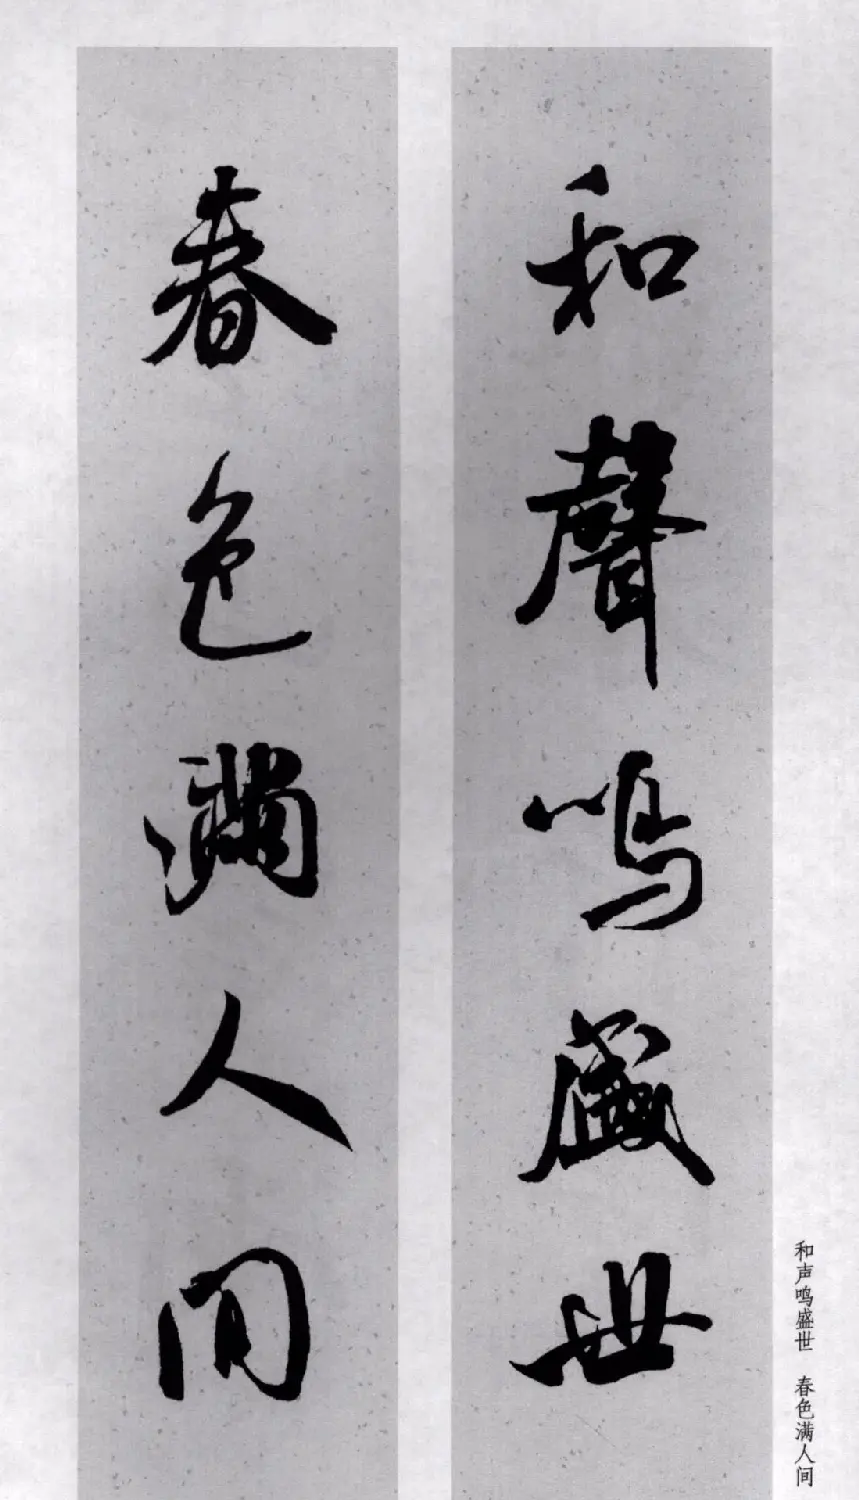 和聲鳴盛世
春色滿人间
和声鸣盛世 春色满人间